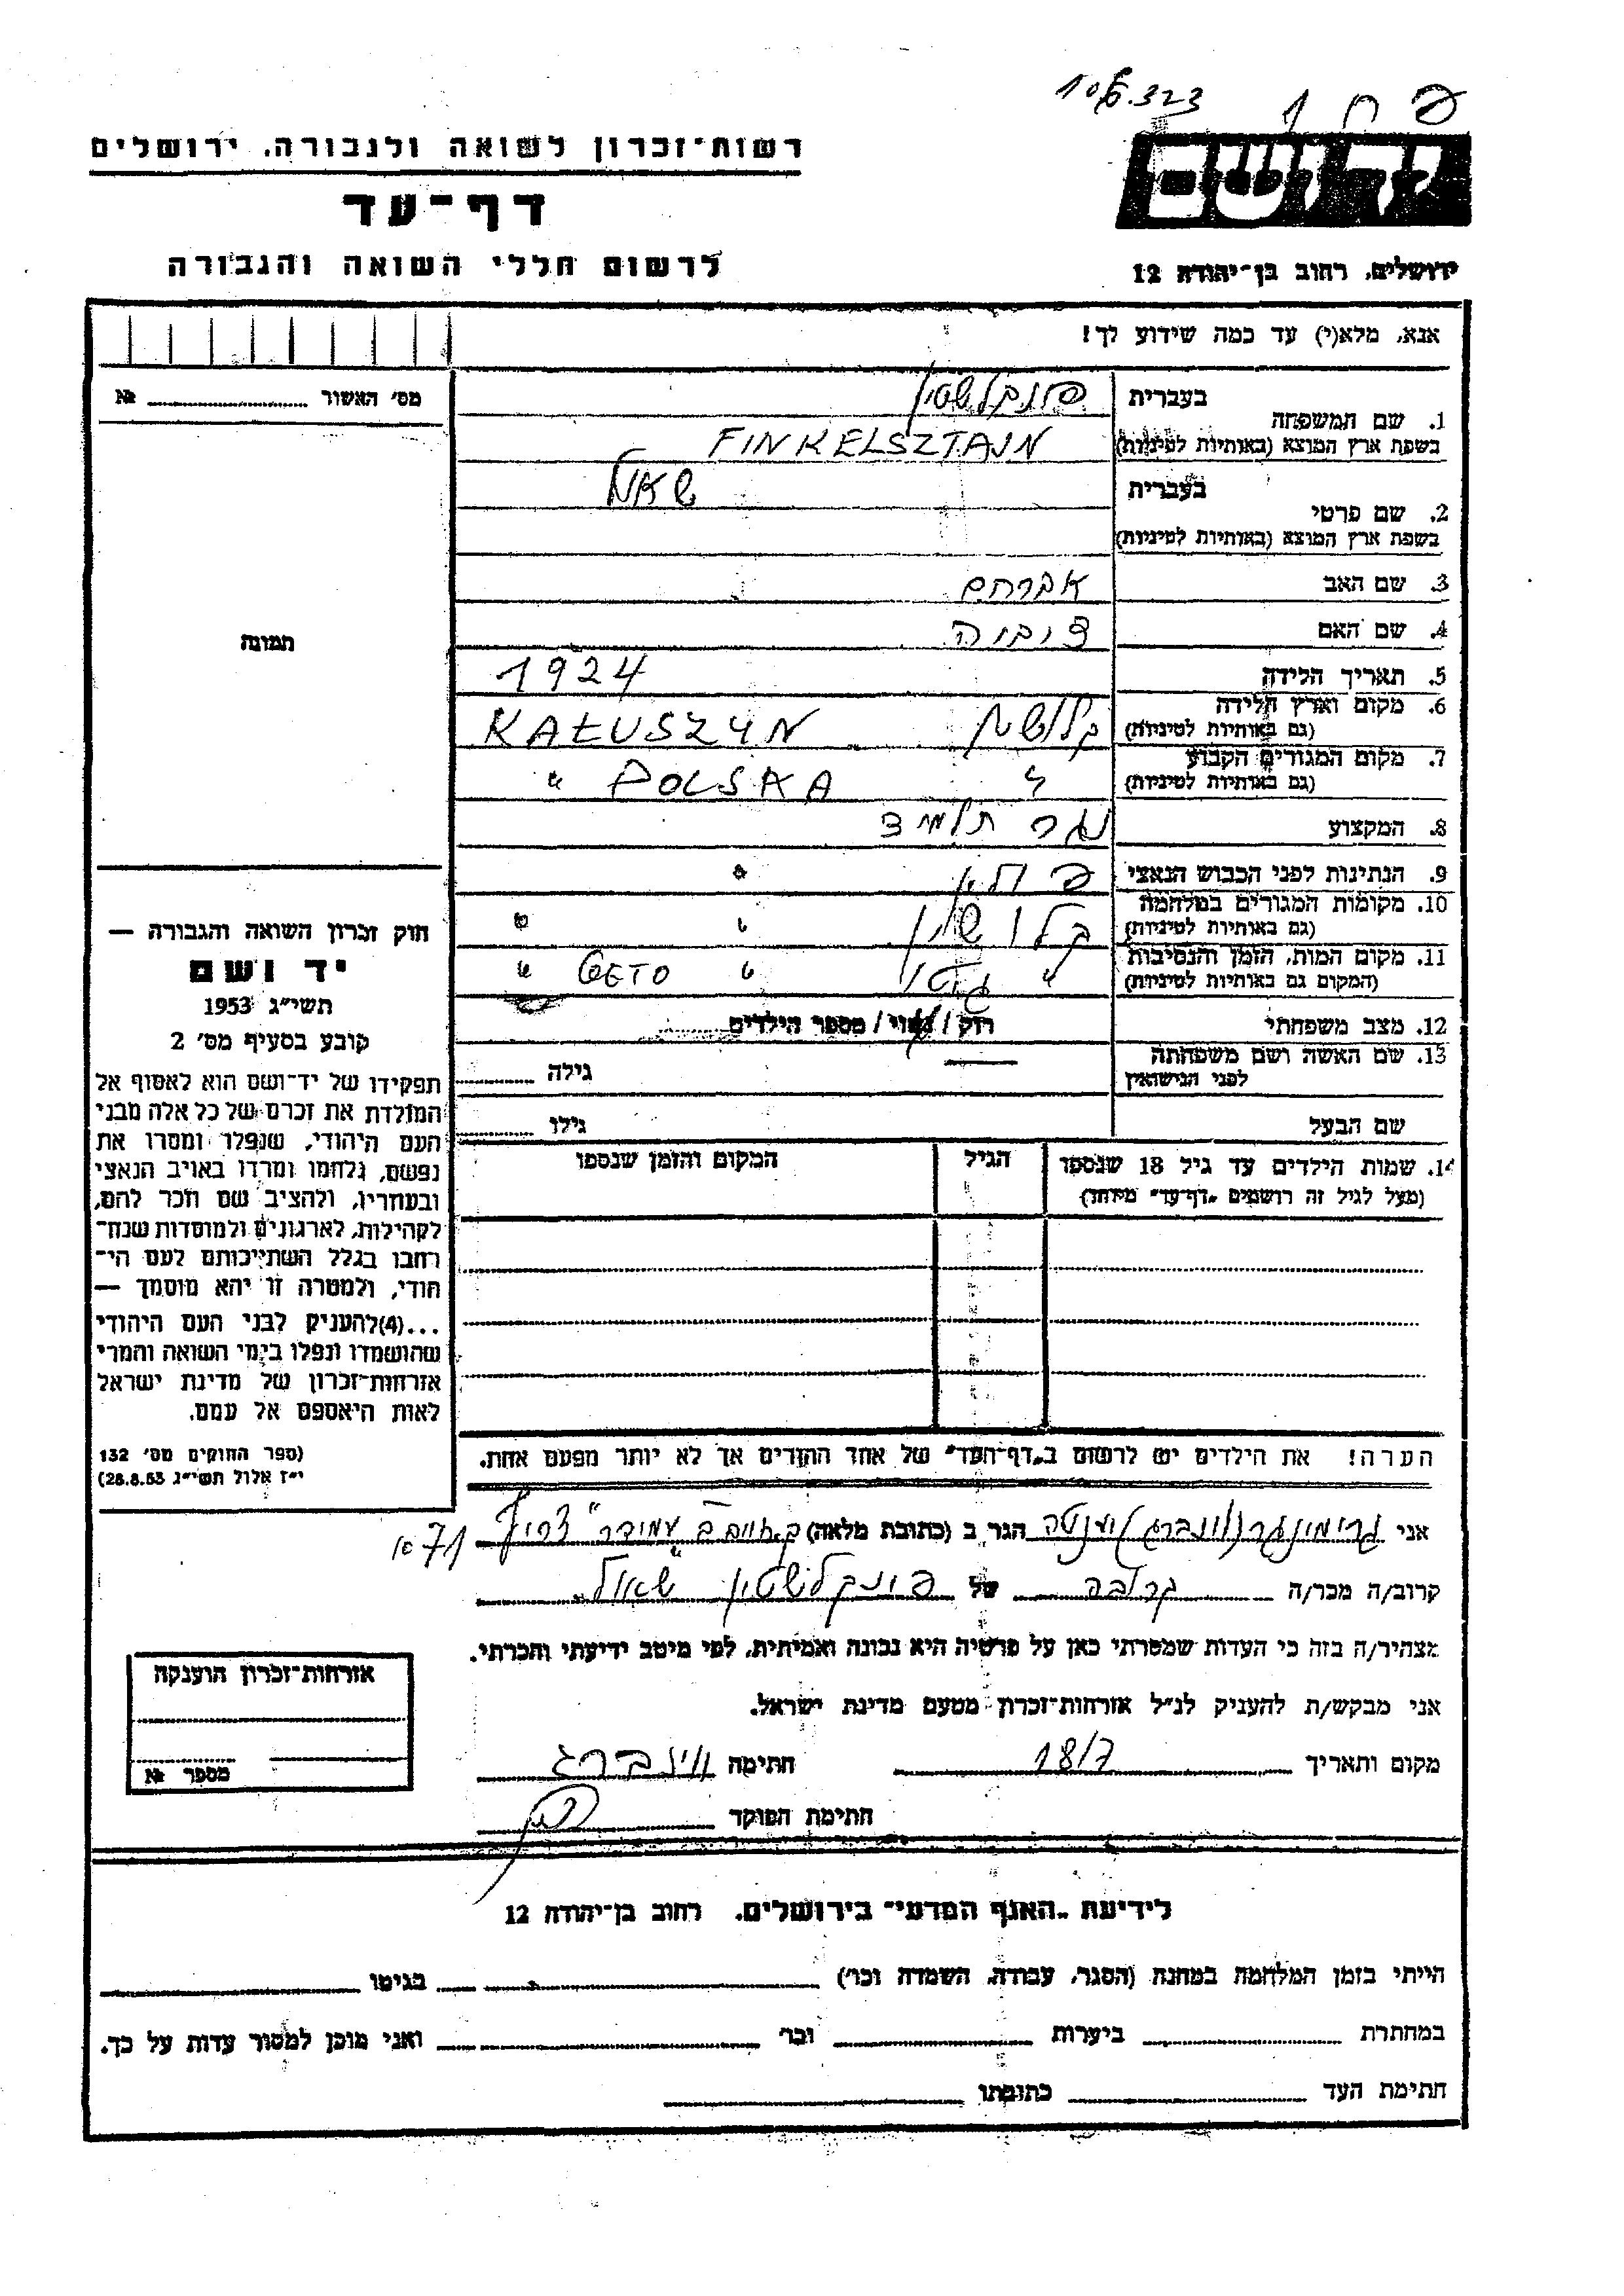 10/6.323
פ ח 1
רשות־זכרון לשואה ולגבורה, ירושלים
יד ושם
דף־עד
לרשום חללי השואה והגבורה
ירושלים, רחוב בן־יהודה 12
אנא, מלא(י) עד כמה שידוע לך!
מס' האשור № 
1. שם המשפחה
בעברית פינקלשטין
בשפת ארץ המוצא (באותיות לטיניות) FINKELSZTAJN
2. שם פרטי
בעברית שאול
בשפת ארץ המוצא (באותיות לטיניות)
3. שם האב אברהם
4. שם האם ציביה
תמונה
5. תאריך הלידה 1924
6. מקום וארץ הלידה
(גם באותיות לטיניות) קלושין KAŁUSZYN
7. מקום המגורים הקבוע
(גם באותיות לטיניות) " POLSKA "
8. המקצוע נגר תלמיד
9. הנתינות לפני הכבוש הנאצי פולין
10. מקומות המגורים במלחמה
(גם באותיות לטיניות) קלושין " "
11. מקום המות, הזמן והנסיבות
(המקום גם באותיות לטיניות) " גיטו " GETO "
12. מצב משפחתי רוק / נשוי / מספר הילדים
13. שם האשה ושם משפחתה
לפני הנישואין — גילה
שם הבעל גילו
14. שמות הילדים עד גיל 18 שנספו
(מעל לגיל זה רושמים „דף־עד" מיוחד)
הגיל
המקום והזמן שנספו
חוק זכרון השואה והגבורה —
יד ושם
תשי"ג 1953
קובע בסעיף מס' 2
תפקידו של יד־ושם הוא לאסוף אל
המולדת את זכרם של כל אלה מבני
העם היהודי, שנפלו ומסרו את
נפשם, נלחמו ומרדו באויב הנאצי
ובעוזריו, ולהציב שם וזכר להם,
לקהילות, לארגונים ולמוסדות שנח־
רבו בגלל השתייכותם לעם הי־
הודי, ולמטרה זו יהא מוסמך —
...(4)להעניק לבני העם היהודי
שהושמדו ונפלו בימי השואה והמרי
אזרחות־זכרון של מדינת ישראל
לאות היאספם אל עמם.
(ספר החוקים מס' 132
י"ז אלול תשי"ג 28.8.53)
הערה! את הילדים יש לרשום ב„דף־העד" של אחד ההורים אך לא יותר מפעם אחת.
אני הגר ב (כתובת מלאה) ק. חיים ב עמידר" צריף 1071
קרוב/ה מכר/ה קרובה של פינקלשטין שאול
מצהיר/ה בזה כי העדות שמסרתי כאן על פרטיה היא נכונה ואמיתית, לפי מיטב ידיעתי והכרתי.
אני מבקש/ת להעניק לנ"ל אזרחות־זכרון מטעם מדינת ישראל.
מקום ותאריך 18/7 חתימה ווינברג
חתימת הפוקד
אזרחות־זכרון הוענקה
מספר №
לידיעת „האגף המדעי" בירושלים, רחוב בן־יהודה 12
הייתי בזמן המלחמה במחנה (הסגר, עבודה, השמדה וכו') בגיטו
במחתרת ביערות וכו' ואני מוכן למסור עדות על כך.
חתימת העד כתובתו